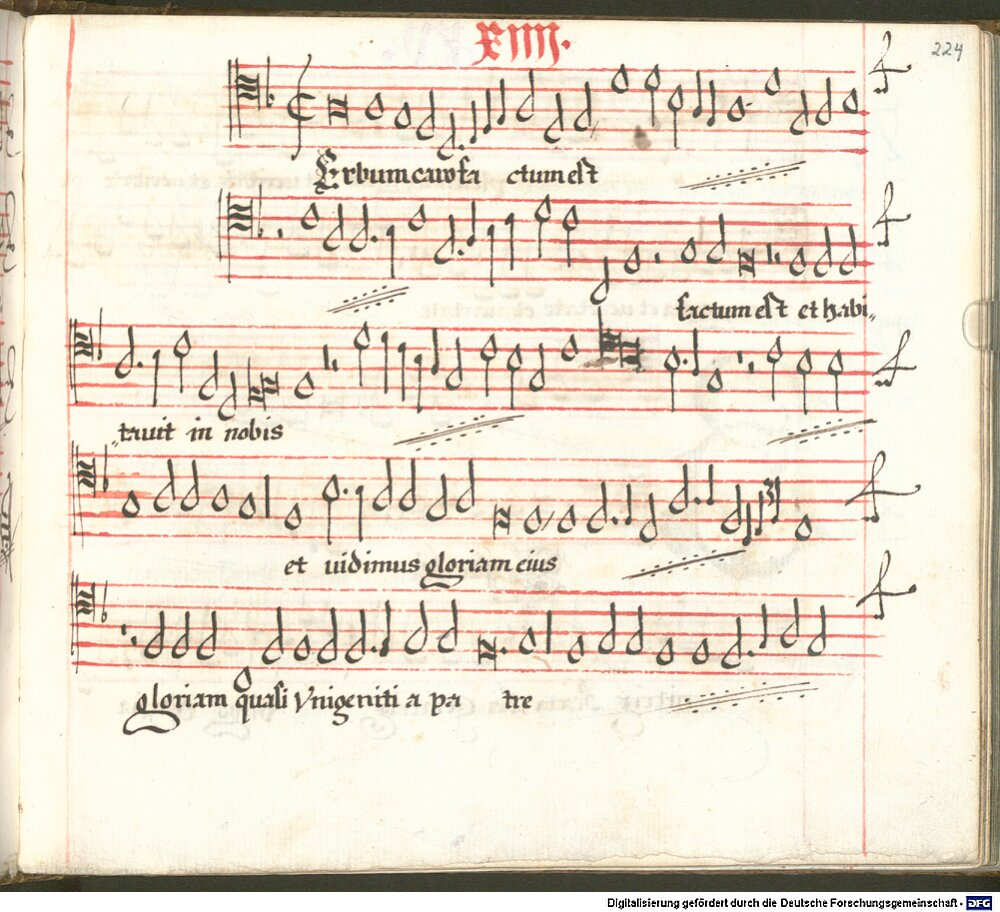 XIIII.
224
Erbum caro fa ctum est
factum est et habi„
„tauit in nobis
et uidimus gloriam eius
gloriam quasi Vnigeniti a pa tre
Digitalisierung gefördert durch die Deutsche Forschungsgemeinschaft - DFG